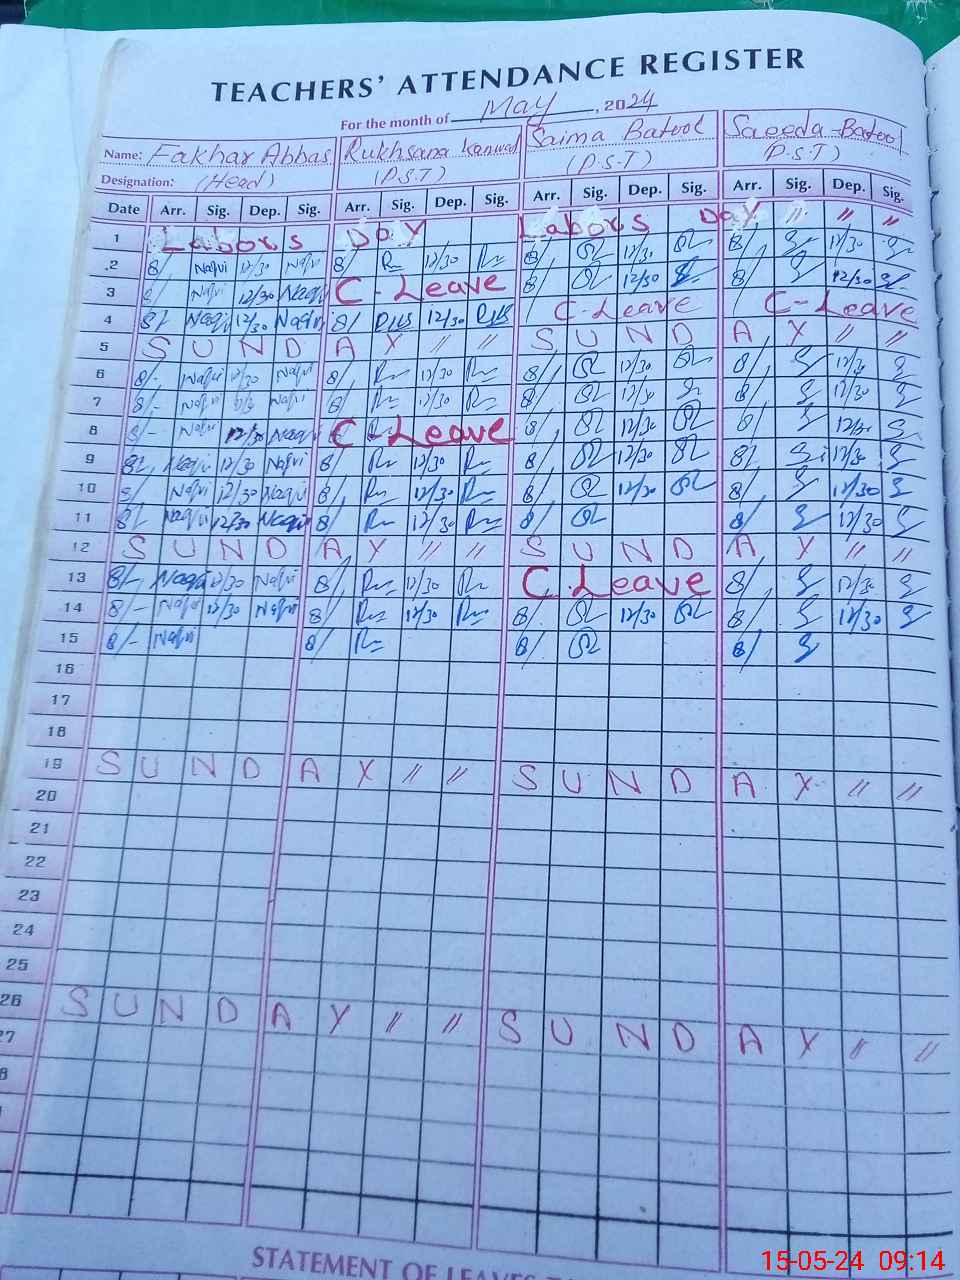 TEACHERS' ATTENDANCE REGISTER
For the month of May, 2024
Name: Fakhar Abbas Rukhsana Kanwal Saima Batool Saeeda Batool
Designation: (Head) (P.S.T) (P.S.T) (P.S.T)
Date Arr. Sig. Dep. Sig. Arr. Sig. Dep. Sig. Arr. Sig. Dep. Sig. Arr. Sig. Dep. Sig.
1 Labors Day Labors Day " " "
2 8/ Naqvi 12/30 Naqvi 8/ 12/30 8/ 12/30 8/ 12/30
3 8/ Naqvi 12/30 Naqvi C-Leave 8/ 12/30 8/ 12/30
4 8/ Naqvi 12/30 Naqvi 8/ 12/30 C-Leave C-Leave
5 S U N D A Y " " S U N D A Y " "
6 8/- Naqvi 12/30 Naqvi 8/ 12/30 8/ 12/30 8/ 12/30
7 8/- Naqvi Naqvi 8/ 12/30 8/ 12/30 8/ 12/30
8 8/- Naqvi 12/30 Naqvi C-Leave 8/ 12/30 8/ 12/30
9 8/ Naqvi 12/30 Naqvi 8/ 12/30 8/ 12/30 8/ 12/30
10 8/ Naqvi 12/30 Naqvi 8/ 12/30 8/ 12/30 8/ 12/30
11 8/ Naqvi 12/30 Naqvi 8/ 12/30 8/ 8/ 12/30
12 S U N D A Y " " S U N D A Y " "
13 8/- Naqvi 12/30 Naqvi 8/ 12/30 C Leave 8/ 12/30
14 8/- Naqvi 12/30 Naqvi 8/ 12/30 8/ 12/30 8/ 12/30
15 8/- Naqvi 8/ 8/ 8/
16
17
18
19 S U N D A Y " " S U N D A Y " "
20
21
22
23
24
25
26 S U N D A Y " " S U N D A Y " "
27
8
STATEMENT OF LEAVES
15-05-24 09:14